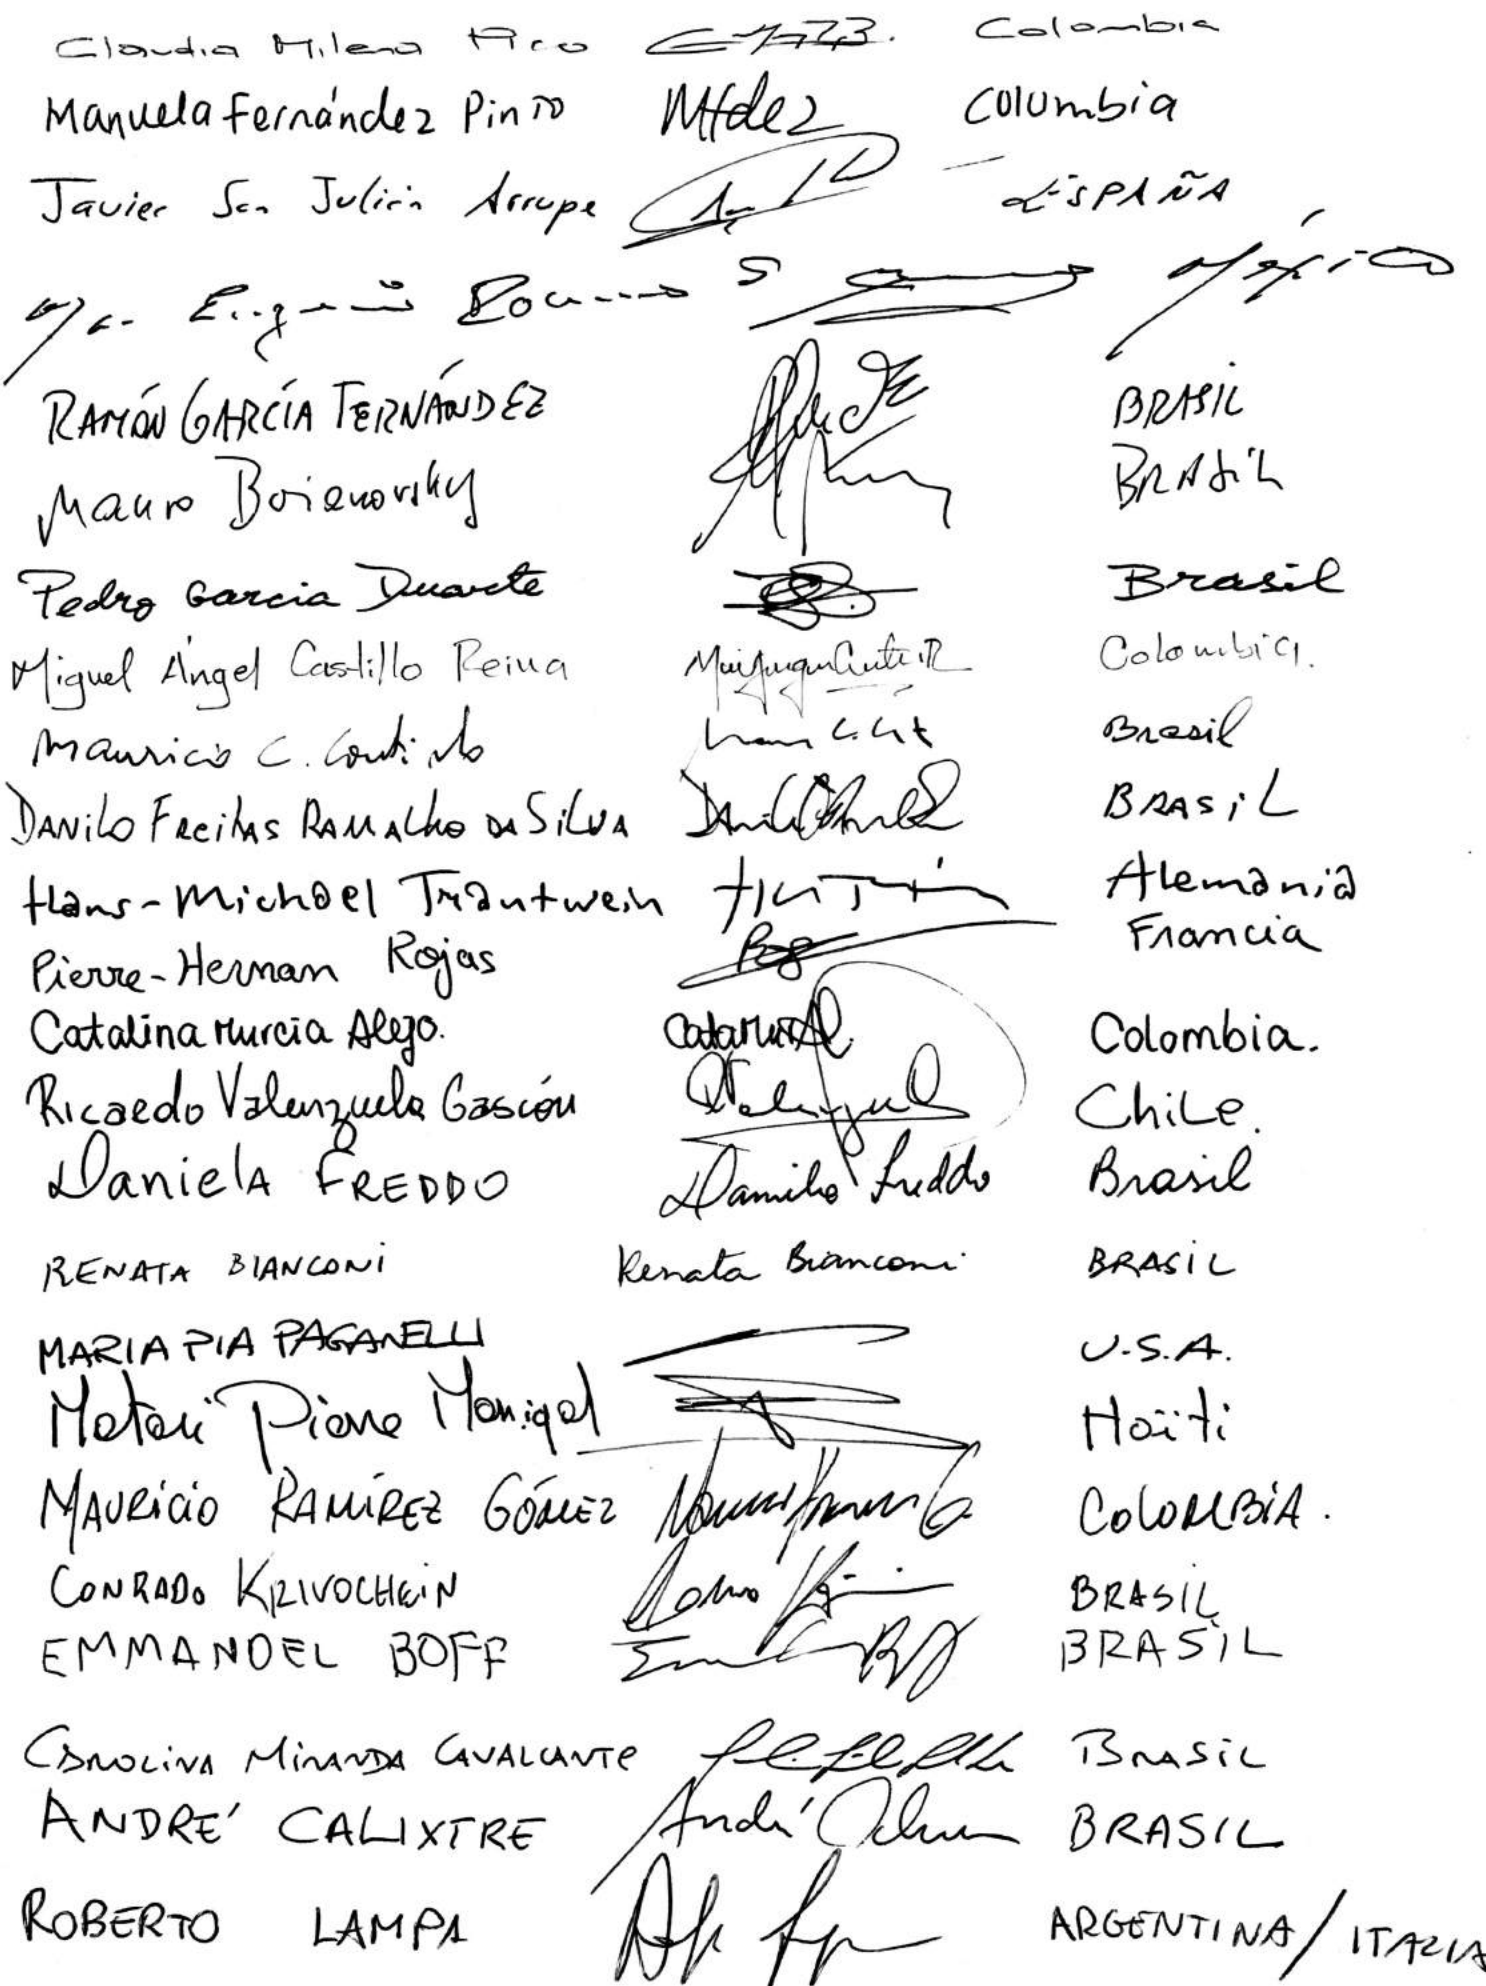 Claudia Milena Pico Colombia
Manuela Fernández Pinto Mfdez Columbia
Javier San Julián Arrupe ESPAÑA
Ma. Eugenia Romero S México
RAMÓN GARCÍA FERNÁNDEZ BRASIL
Mauro Boianovsky BRASIL
Pedro Garcia Duarte Brasil
Miguel Ángel Castillo Reina Colombia.
Mauricio C. Coutinho Brasil
DANILO FREITAS RAMALHO DA SILVA BRASIL
Hans-Michael Trautwein Alemania
Pierre-Hernan Rojas Francia
Catalina Murcia Alejo. Colombia.
Ricardo Valenzuela Gascón Chile.
Daniela FREDDO Daniela Freddo Brasil
RENATA BIANCONI Renata Bianconi BRASIL
MARIA PIA PAGANELLI U.S.A.
Pierre Haïti
MAURICIO RAMÍREZ GÓMEZ COLOMBIA.
CONRADO KRIVOCHEIN BRASIL
EMMANOEL BOFF BRASIL
CAROLINA MIRANDA CAVALCANTE BRASIL
ANDRÉ CALIXTRE BRASIL
ROBERTO LAMPA ARGENTINA / ITALIA